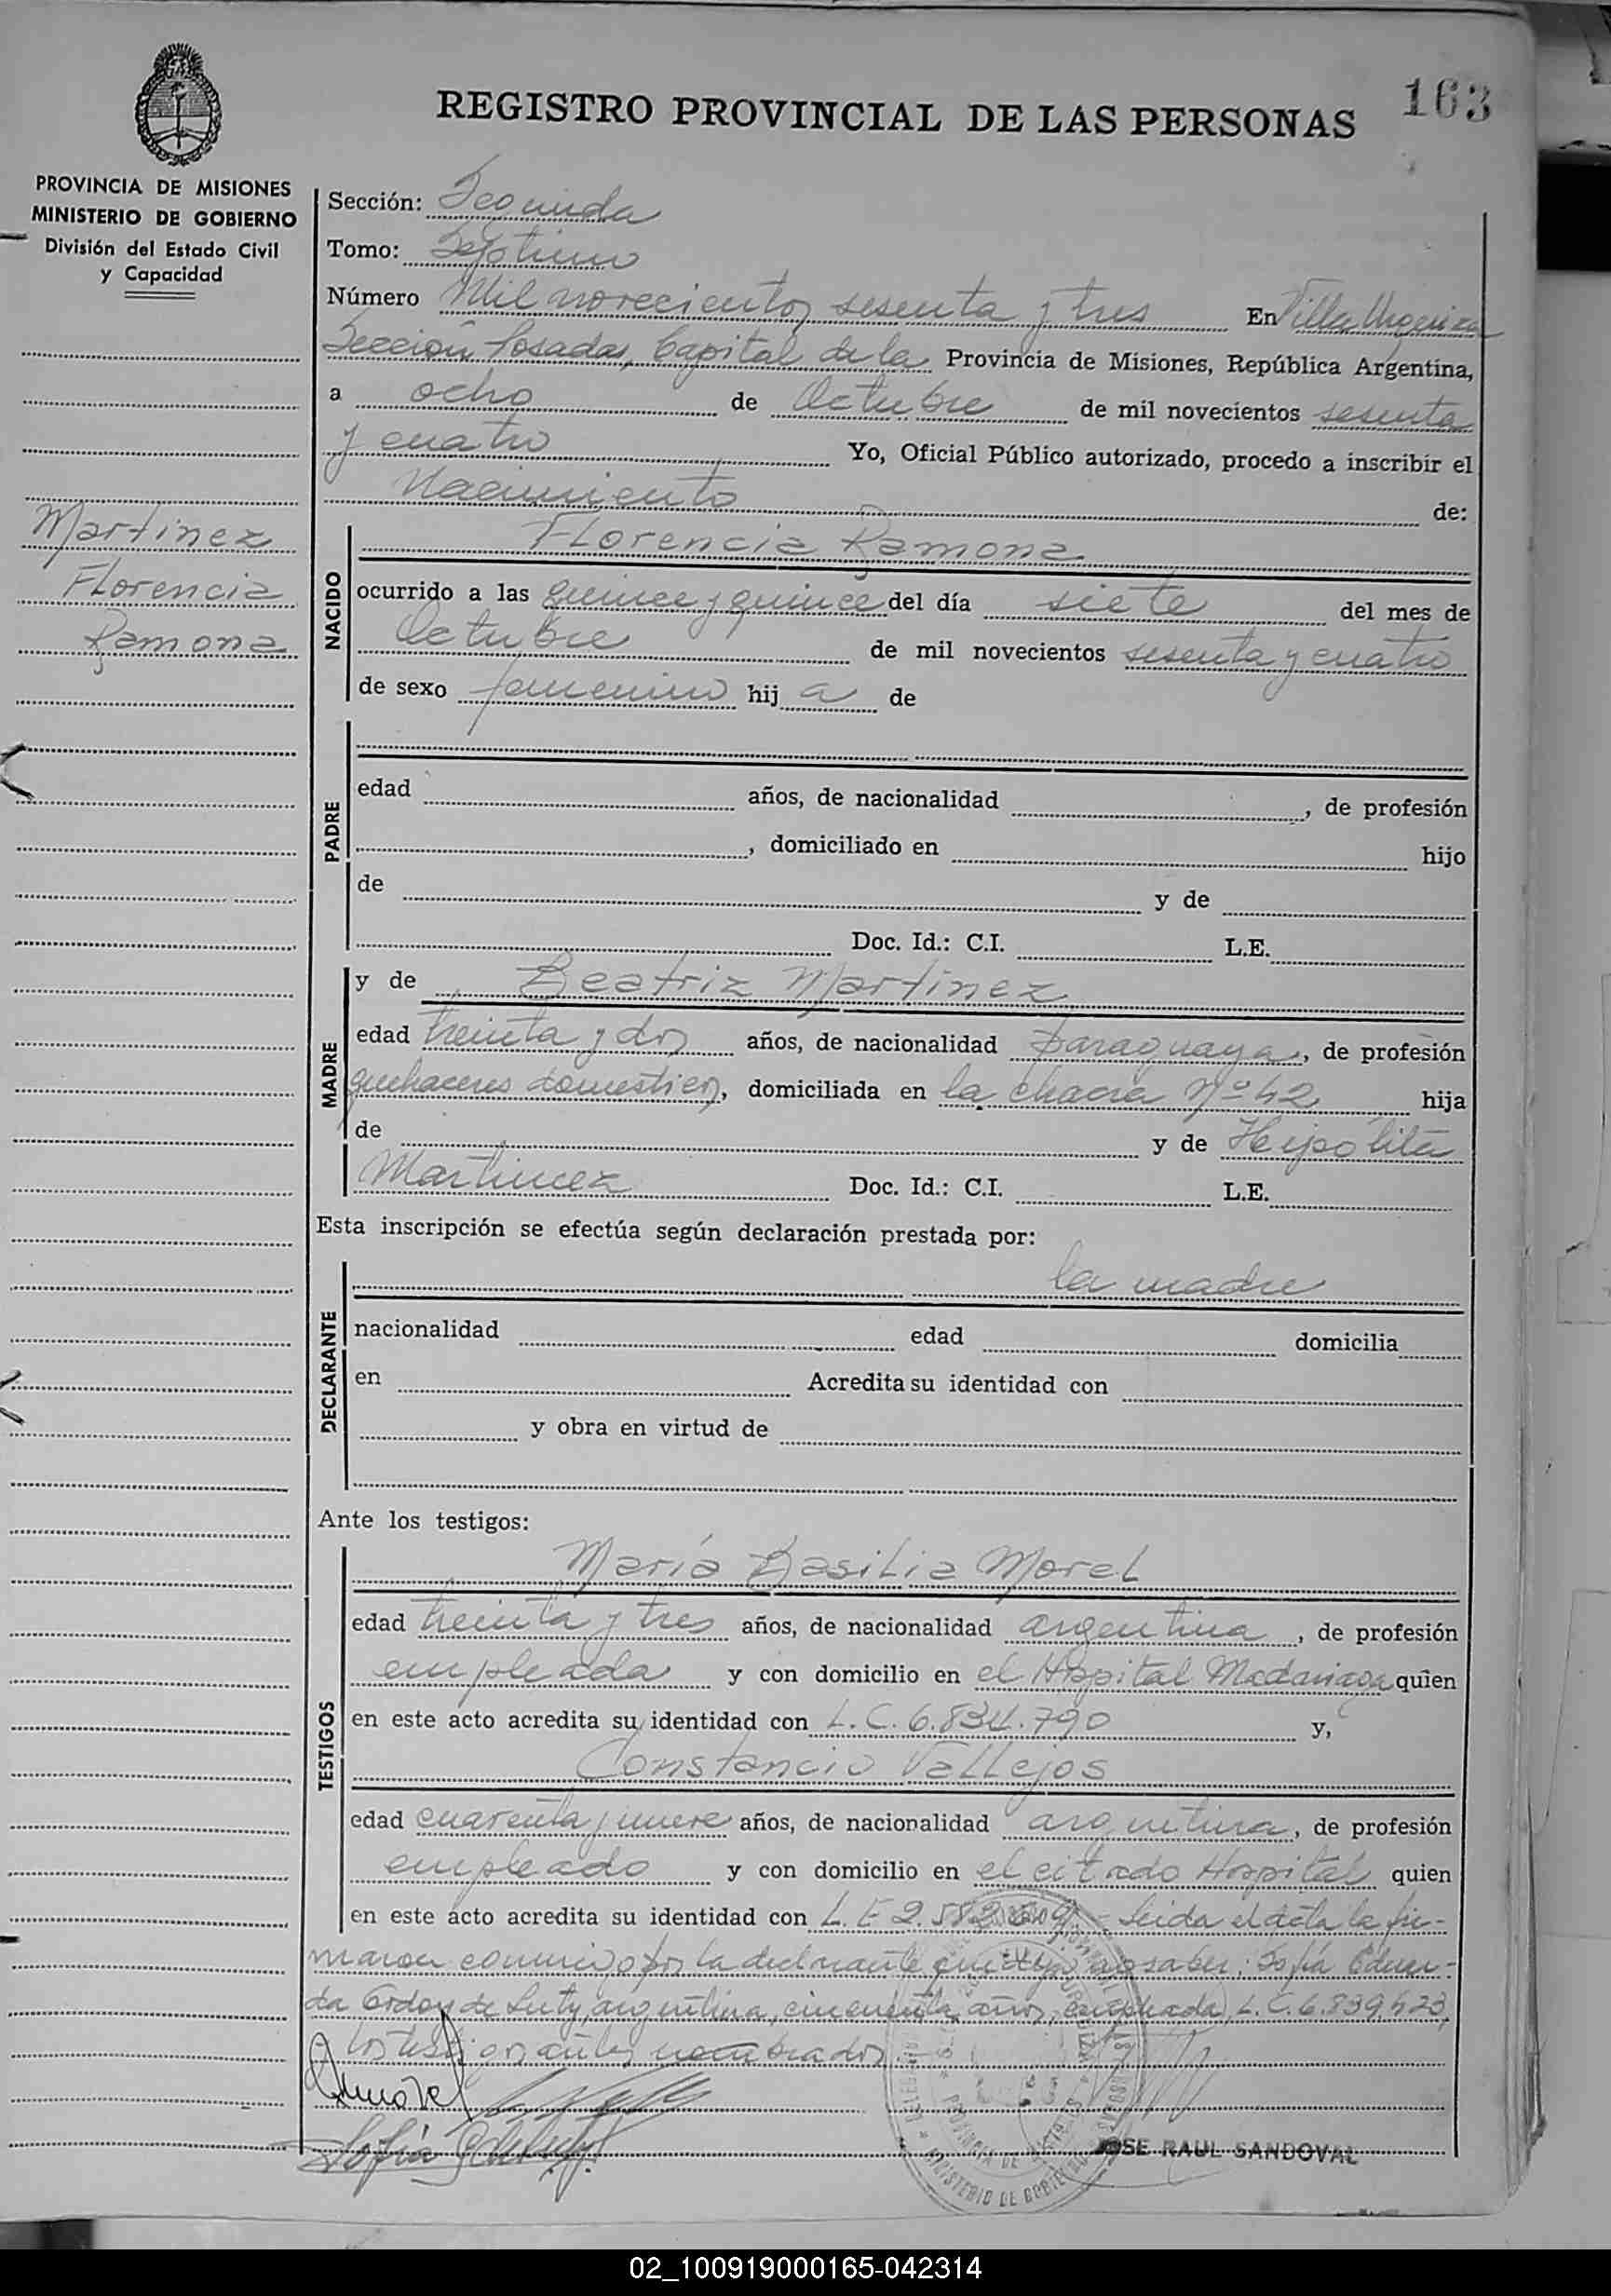 163
REGISTRO PROVINCIAL DE LAS PERSONAS
PROVINCIA DE MISIONES
MINISTERIO DE GOBIERNO
División del Estado Civil
y Capacidad
Sección: Segunda
Tomo: Septimo
Número Mil novecientos sesenta y tres En Villa Urquiza
Sección Posadas, Capital de la Provincia de Misiones, República Argentina,
a ocho de Octubre de mil novecientos sesenta
y cuatro Yo, Oficial Público autorizado, procedo a inscribir el
Nacimiento de:
Martinez
Florencia
Ramona
NACIDO
Florencia Ramona
ocurrido a las quince y quince del día siete del mes de
Octubre de mil novecientos sesenta y cuatro
de sexo femenino hij a de
PADRE
edad años, de nacionalidad , de profesión
, domiciliado en hijo
de y de
Doc. Id.: C.I. L.E.
MADRE
y de Beatriz Martinez
edad treinta y dos años, de nacionalidad paraguaya, de profesión
quehaceres domesticos, domiciliada en la chacra Nº 42 hija
de y de Heipolita
Martinez Doc. Id.: C.I. L.E.
Esta inscripción se efectúa según declaración prestada por:
DECLARANTE
la madre
nacionalidad edad domicilia
en Acredita su identidad con
y obra en virtud de
Ante los testigos:
TESTIGOS
María Basilia Morel
edad treinta y tres años, de nacionalidad argentina, de profesión
empleada y con domicilio en el Hospital Madariaga quien
en este acto acredita su identidad con L.C. 6.834.790 y,
Constancio Vallejos
edad cuarenta y nueve años, de nacionalidad argentina, de profesión
empleado y con domicilio en el citado Hospital quien
en este acto acredita su identidad con L.E 2. Leida el acta la fir-
maron conmigo por la declarante que dijo no saber: Sofía Eduar-
da de Luty, argentina, cincuenta años, empleada, L.C. 6.839.423,
y los testigos antes nombrados.
JOSE RAUL SANDOVAL
02_100919000165-042314